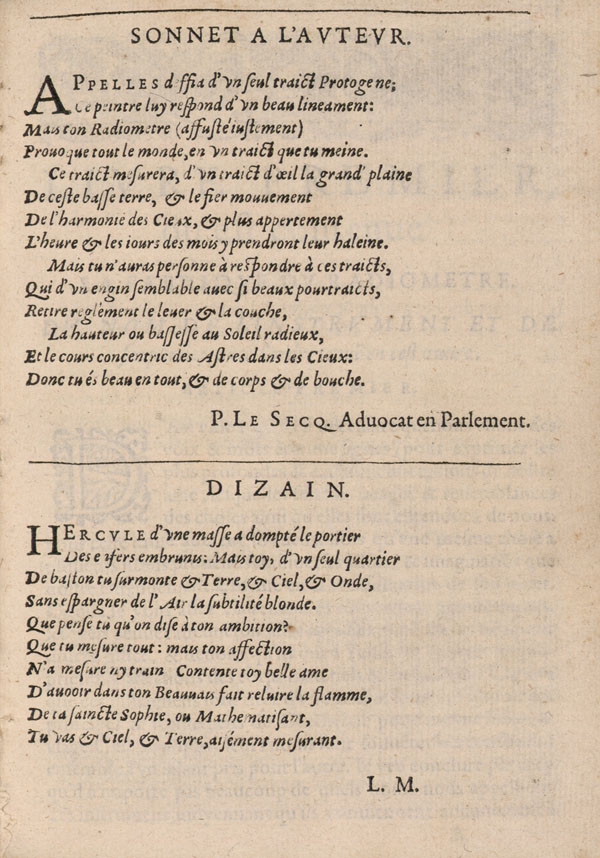 SONNET A L'AVTEVR.
APPELLES deffia d'vn seul traict Protogene;
Ce peintre luy respond d'vn beau lineament:
Mais ton Radiometre (affusté iustement)
Prouoque tout le monde, en vn traict que tu meine.
Ce traict mesurera, d'vn traict d'œil la grand' plaine
De ceste basse terre, & le fier mouuement
De l'harmonie des Cieux, & plus appertement
L'heure & les iours des mois y prendront leur haleine.
Mais tu n'auras personne à respondre à ces traicts,
Qui d'vn engin semblable auec si beaux pourtraicts,
Retire reglément le leuer & la couche,
La hauteur ou bassesse au Soleil radieux,
Et le cours concentric des Astres dans les Cieux:
Donc tu és beau en tout, & de corps & de bouche.
P. LE SECQ. Aduocat en Parlement.
DIZAIN.
HERCVLE d'vne masse a dompté le portier
Des enfers embrunis: Mais toy, d'vn seul quartier
De baston tu surmonte & Terre, & Ciel, & Onde,
Sans espargner de l'Air la subtilité blonde.
Que pense tu qu'on dise à ton ambition?
Que tu mesure tout: mais ton affection
N'a mesure ny train Contente toy belle ame
D'auoir dans ton Beauuais fait reluire la flamme,
De ta saincte Sophie, ou Mathematisant,
Tu vas & Ciel, & Terre, aisément mesurant.
L. M.